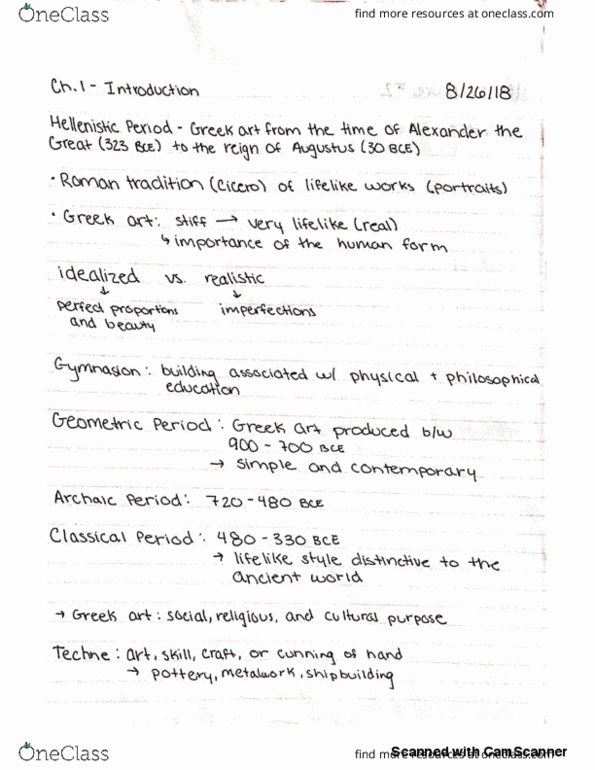 OneClass
find more resources at oneclass.com
Ch.1 - Introduction 8/26/18
Hellenistic Period - Greek art from the time of Alexander the
Great (323 BCE) to the reign of Augustus (30 BCE)
• Roman tradition (Cicero) of lifelike works (portraits)
• Greek art: stiff → very lifelike (real)
↳ importance of the human form
idealized vs. realistic
↓ ↓
perfect proportions imperfections
and beauty
Gymnasion: building associated w/ physical + philosophical
education
Geometric Period: Greek art produced b/w
900 - 700 BCE
→ simple and contemporary
Archaic Period: 720 - 480 BCE
Classical Period: 480 - 330 BCE
→ lifelike style distinctive to the
ancient world
→ Greek art: social, religious, and cultural purpose
Techne: art, skill, craft, or cunning of hand
→ pottery, metalwork, shipbuilding
OneClass
find more resources at oneclass.com
Scanned with CamScanner